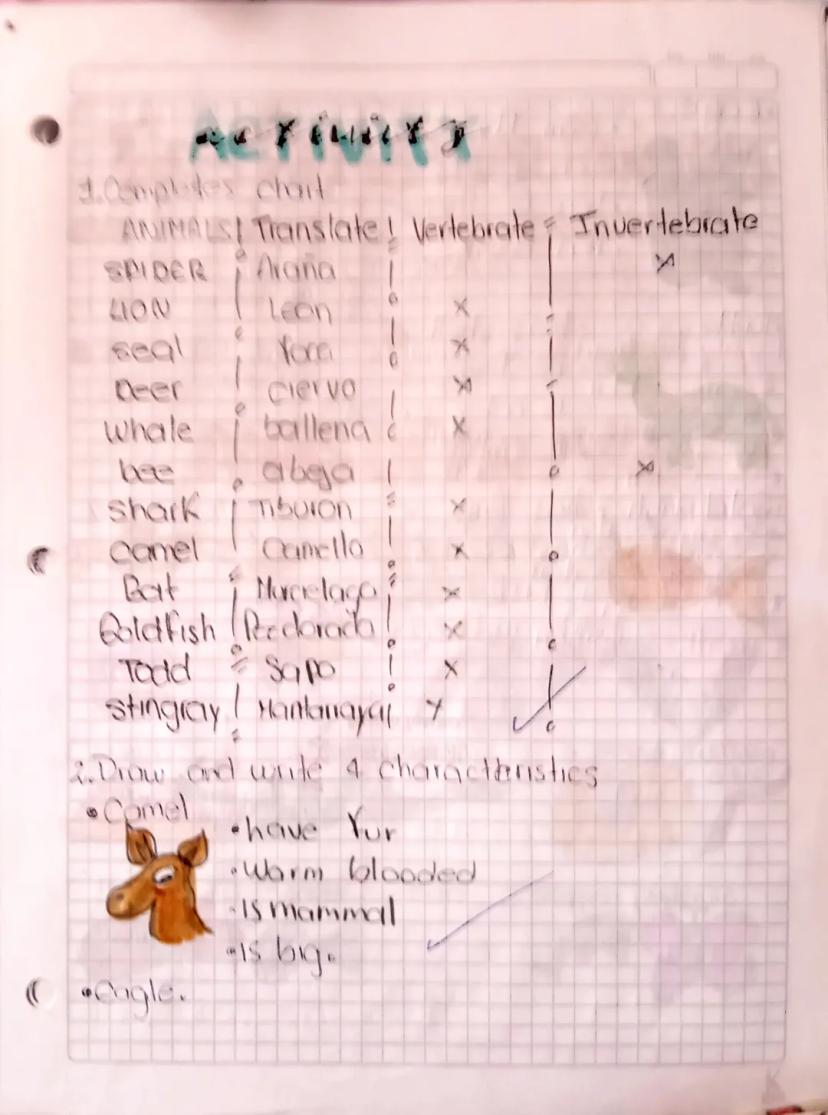 ACTIVITY
1. Completes chart
ANIMALS Translate Vertebrate Invertebrate
SPIDER Araña x
LION Leon x
seal Foca x
Deer ciervo x
whale ballena x
bee abeja x
shark Tiburon x
camel Camello x
Bat Murcielago x
Goldfish Pez dorado x
Todd Sapo x
stingray Mantarraya x
2. Draw and write 4 characteristics
• Camel
• have Fur
• Warm blooded
• Is mammal
• Is big.
• Eagle.